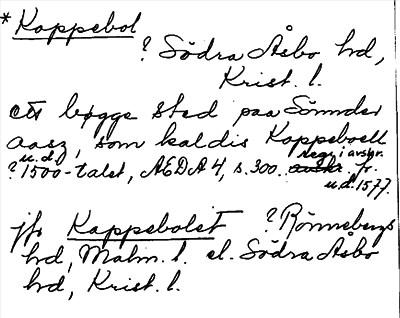 *Koppebol
? Södra Åsbo hd,
Krist. l.
ett bøgge sted paa Sönnder
aasz, som kaldis Koppeboell
u.d. regr i avskr.
? 1500-talet, AEDA 4, s. 300. fr.
u.d. 1577.
jfr Koppebolet ? Rönnebergs
hd, Malm. l. el. Södra Åsbo
hd, Krist. l.